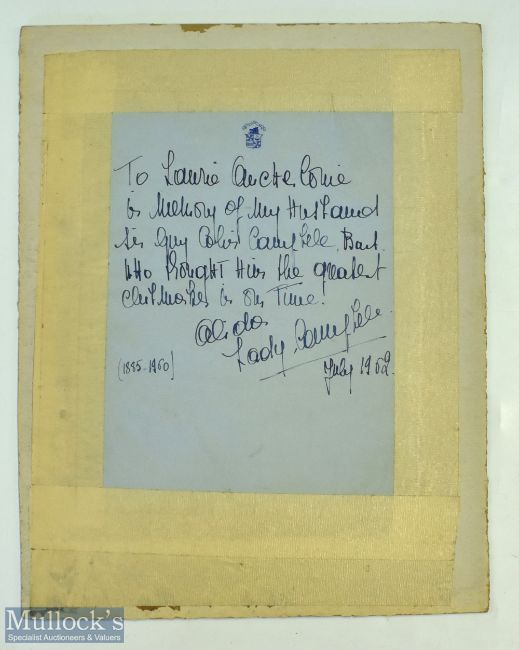 To Laurie Auchterlonie
in Memory of My Husband
Sir Guy Colin Campbell. Bart.
Who thought Him the greatest
Club Maker in our Time.
Alida
Lady Campbell.
(1885-1960)
July 1962.
Mullock's
Specialist Auctioneers & Valuers